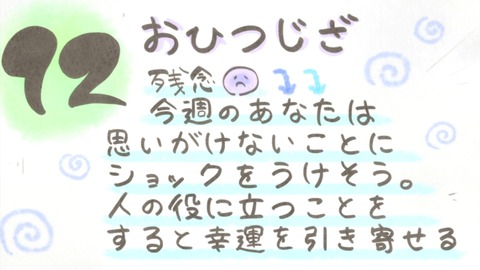 12
おひつじざ
残念
今週のあなたは
思いがけないことに
ショックをうけそう。
人の役に立つことを
すると幸運を引き寄せる